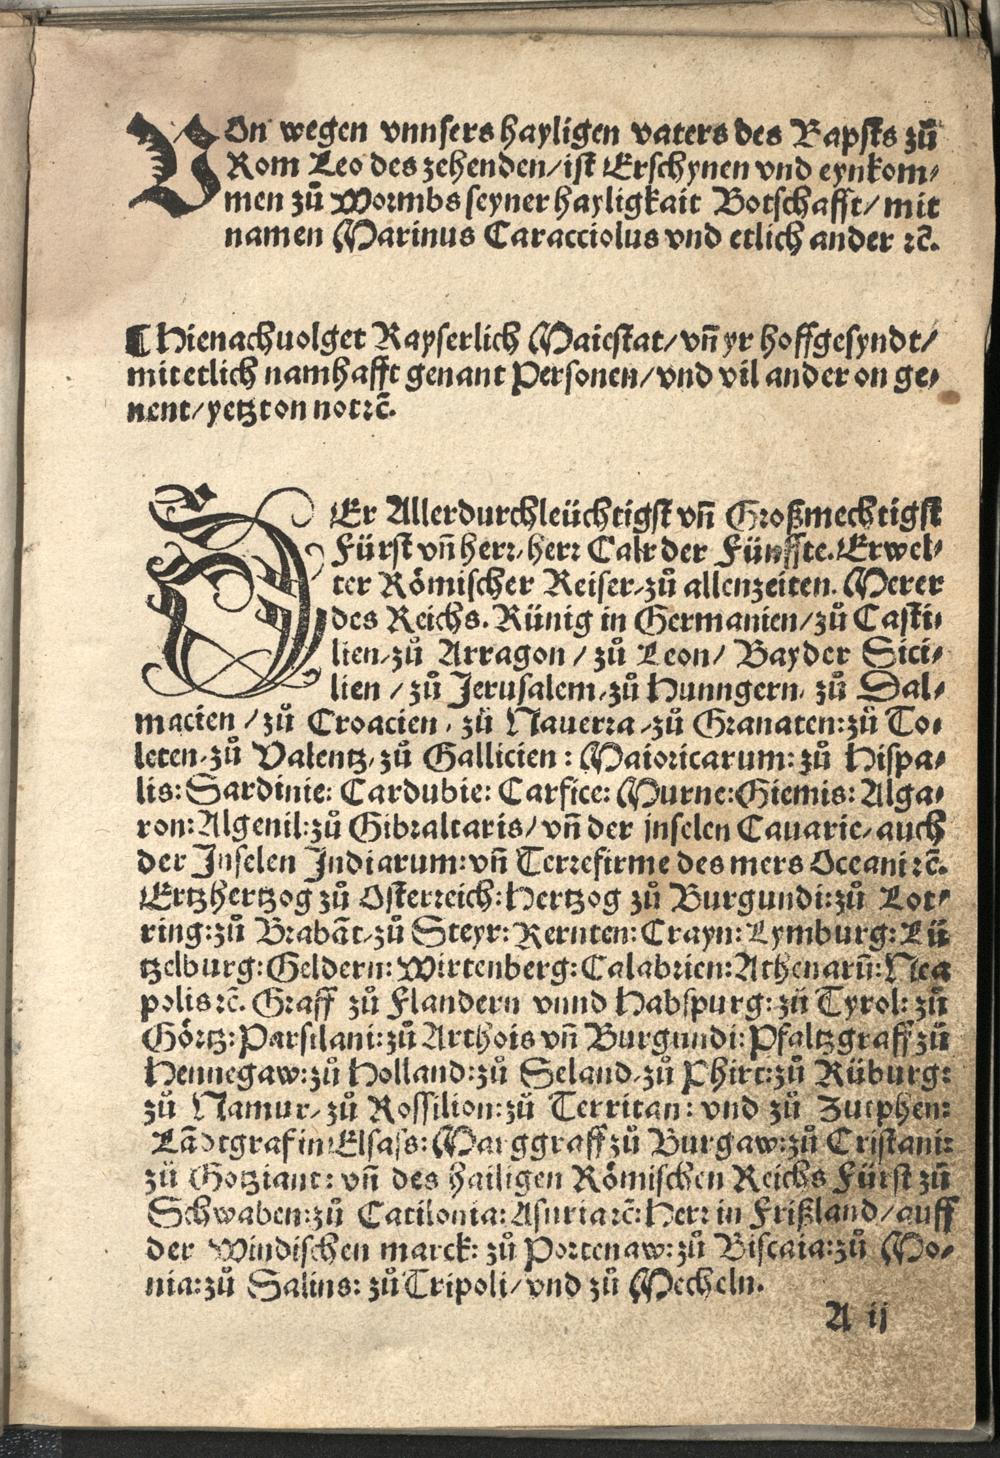 VOn wegen vnnsers hayligen vaters des Bapsts zů
Rom Leo des zehenden/ ist Erschynen vnd eynkom⸗
men zů Wormbs seyner hayligkait Botschafft/ mit
namen Marinus Caracciolus vnd etlich ander ꝛc̄.
¶ Hienachuolget Kayserlich Maiestat/ vn̄ yr hoffgesyndt/
mit etlich namhafft genant Personen/ vnd vil ander on ge⸗
nent/ yetzt on not ꝛc̄.
DEr Allerdurchleüchtigst vn̄ Großmechtigst
Fürst vn̄ herr, herr Calr der Fünffte. Erwel⸗
ter Römischer Keiser, zů allenzeiten. Merer
des Reichs. Künig in Germanien/ zů Casti⸗
lien, zů Arragon / zů Leon/ Bayder Sici⸗
lien / zů Jerusalem, zů Hunngern, zů Dal⸗
macien / zů Croacien, zů Nauerra, zů Granaten: zů To⸗
leten, zů Valentz, zů Gallicien : Maioricarum: zů Hispa⸗
lis: Sardinie: Cardubie: Corsice: Murne: Giemis: Alga⸗
ron: Algenil: zů Gibraltaris/ vn̄ der jnselen Canarie, auch
der Jnselen Jndiarum: vn̄ Terrefirme des mers Oceani ꝛc̄.
Ertzhertzog zů Osterreich: Hertzog zů Burgundi: zů Lot⸗
ring: zů Brabāt, zů Steyr: Kernten: Crayn: Lymburg: Lü
tzelburg: Geldern: Wirtenberg: Calabrien: Athenarū: Nea
polis ꝛc̄. Graff zů Flandern vnnd Habspurg: zů Tyrol: zů
Görtz: Parsilani: zů Arthois vn̄ Burgundi: Pfaltzgraff zů
Hennegaw: zů Holland: zů Seland, zů Phirt: zů Küburg:
zů Namur, zů Rossilion: zů Territan: vnd zů Zutphen:
Lādtgraf in Elsass: Marggraff zů Burgaw: zů Cristani:
zů Gotziant: vn̄ des hailigen Römischen Reichs Fürst zů
Schwaben: zů Catilonia: Asturia ꝛc̄: Herr in Frißland/ auff
der Windischen marck: zů Portenaw: zů Biscaia: zů Mo⸗
nia: zů Salins: zů Tripoli/ vnd zů Mecheln.
A ij